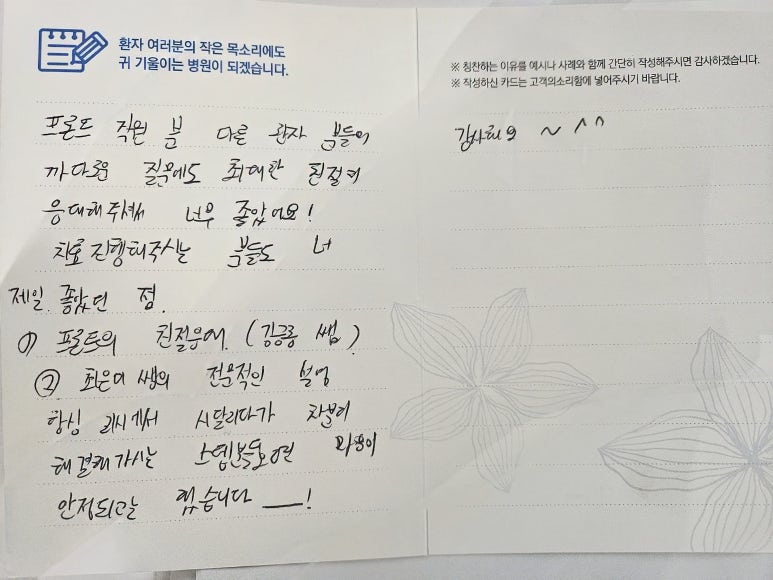 환자 여러분의 작은 목소리에도
귀 기울이는 병원이 되겠습니다.
프론트 직원 분 다른 환자 분들의
까다로운 질문에도 최대한 친절히
응대해주셔서 너무 좋았어요!
치료 진행해주시는 분들도 너
제일 좋았던 점.
① 프론트의 친절응대. ( 쌤)
② 최은미 쌤의 전문적인 설명
항상 시달리다가 차분히
해결해가시는 스탭분들보면 마음이
안정되고는 했습니다 __!
※ 칭찬하는 이유를 예시나 사례와 함께 간단히 작성해주시면 감사하겠습니다.
※ 작성하신 카드는 고객의소리함에 넣어주시기 바랍니다.
감사해요 ~ ^^